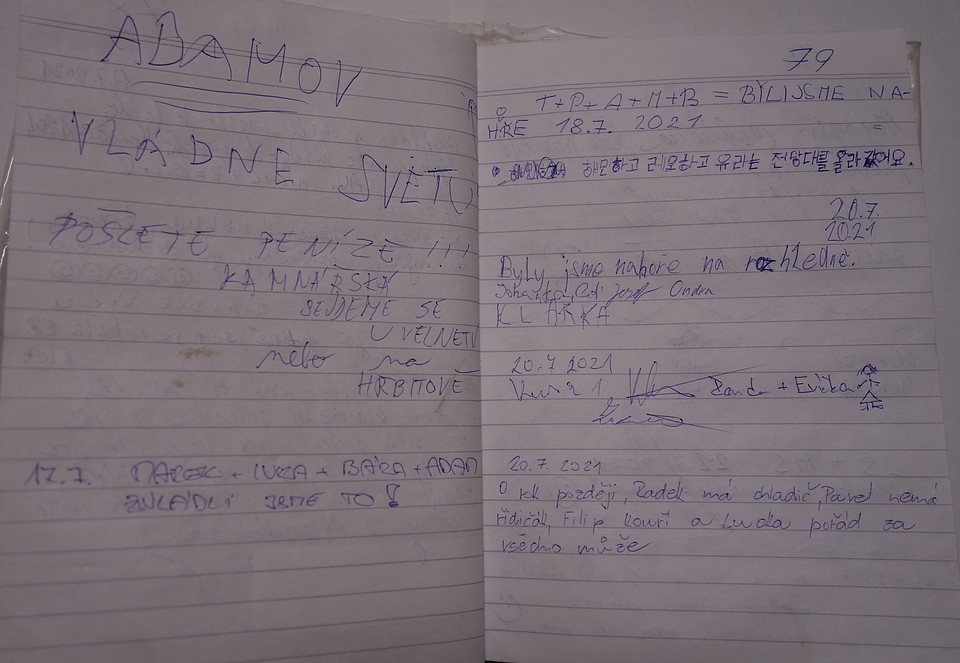 ADAMOV
VLÁDNE SVĚTU
POŠLETE PENÍZE !!!
KAMNÁŘSKÁ
SEJDEME SE
U VELNETU
nebo na
HŘBITOVĚ
17.7. MAREK + IVKA + BÁRA + ADAM
ZVLÁDLI JSME TO!
79
T+P+A+M+B = BYLI JSME NA-
HŘE 18.7. 2021
해문하고 레오하고 유라는 전망대를 올라갔어요.
20.7.
2021
Byly jsme nahoře na rozhledně.
Ondra
KLÁRKA
20.7 2021
+ Evička
20.7.2021
O rok později, Radek má chladič, Pavel nemá
řidičák, Filip kouří a Luďa pořád za
všechno může